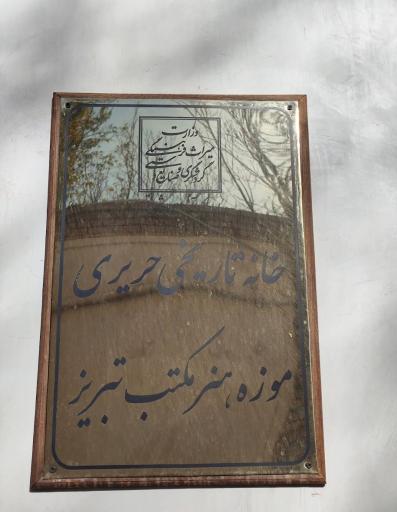 وزارت
میراث فرهنگی
گردشگری و صنایع دستی
خانه تاریخی حریری
موزه هنر مکتب تبریز